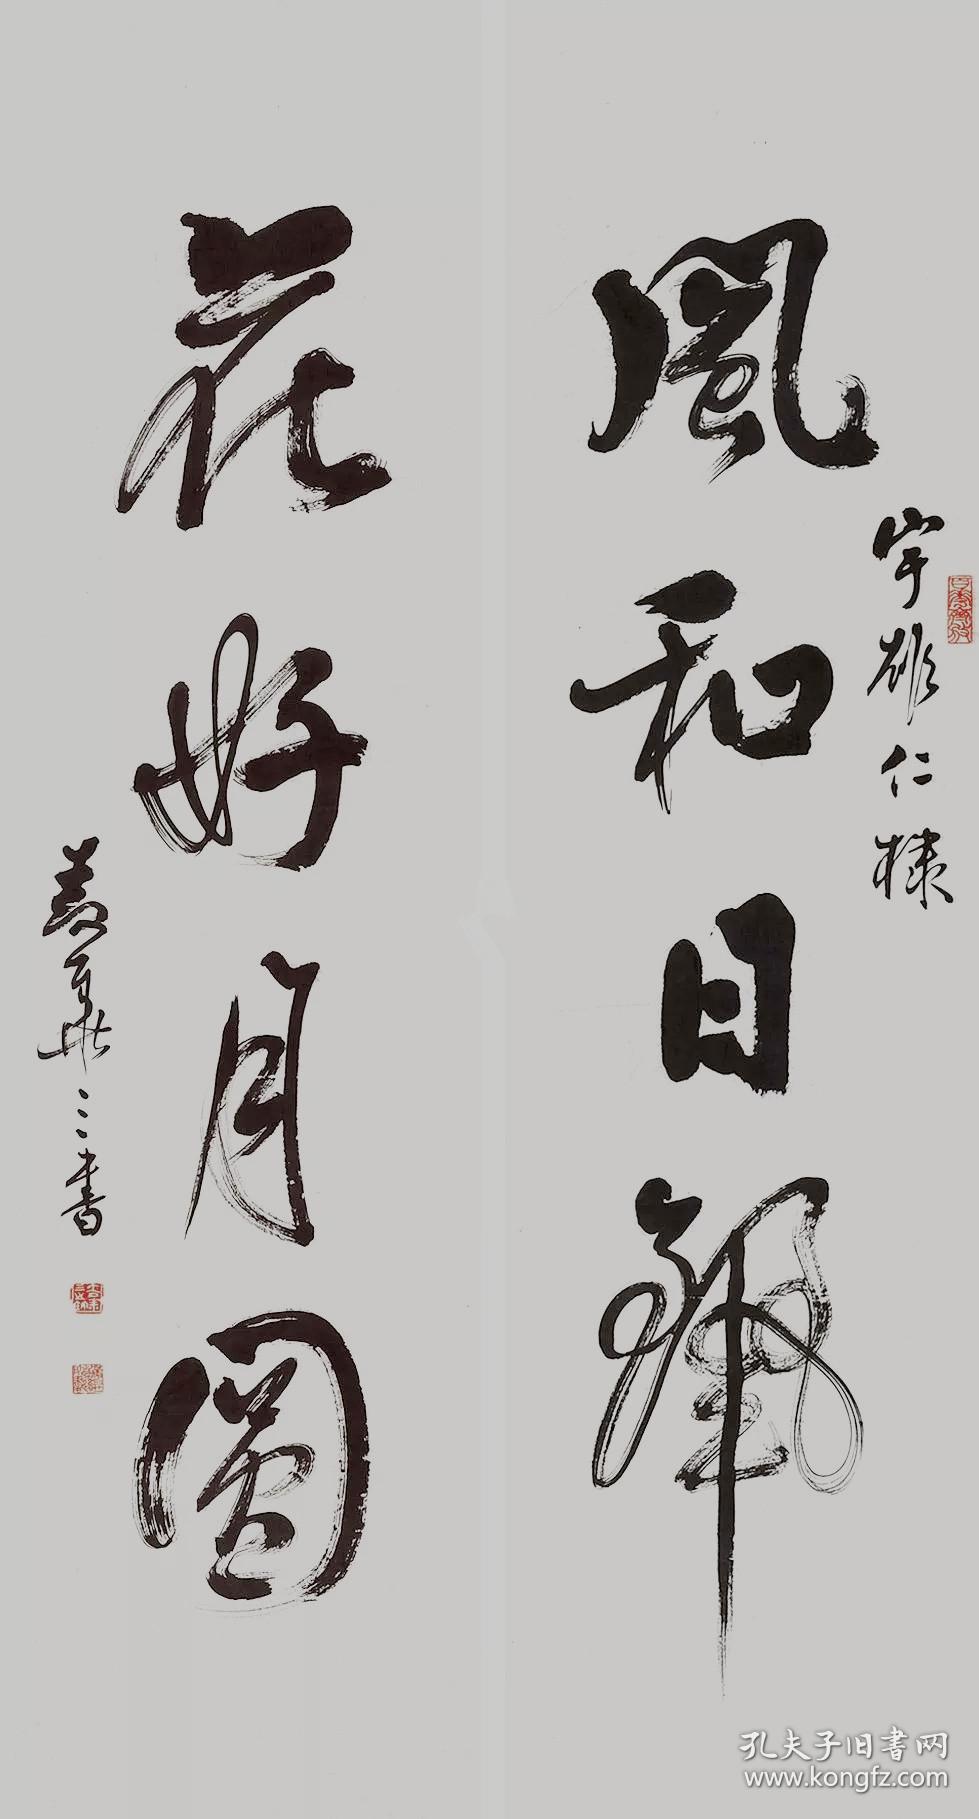 宇雄仁棣
風和日
花好月圓
書
孔夫子旧书网
www.kongfz.com